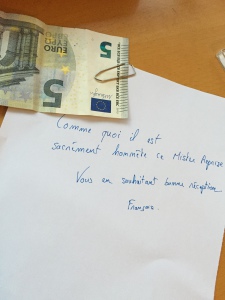 5
EURO
ΕΥΡΩ
5
Comme quoi il est
sacrément honnête ce Mister Reprise
Vous en souhaitant bonne réception
François.